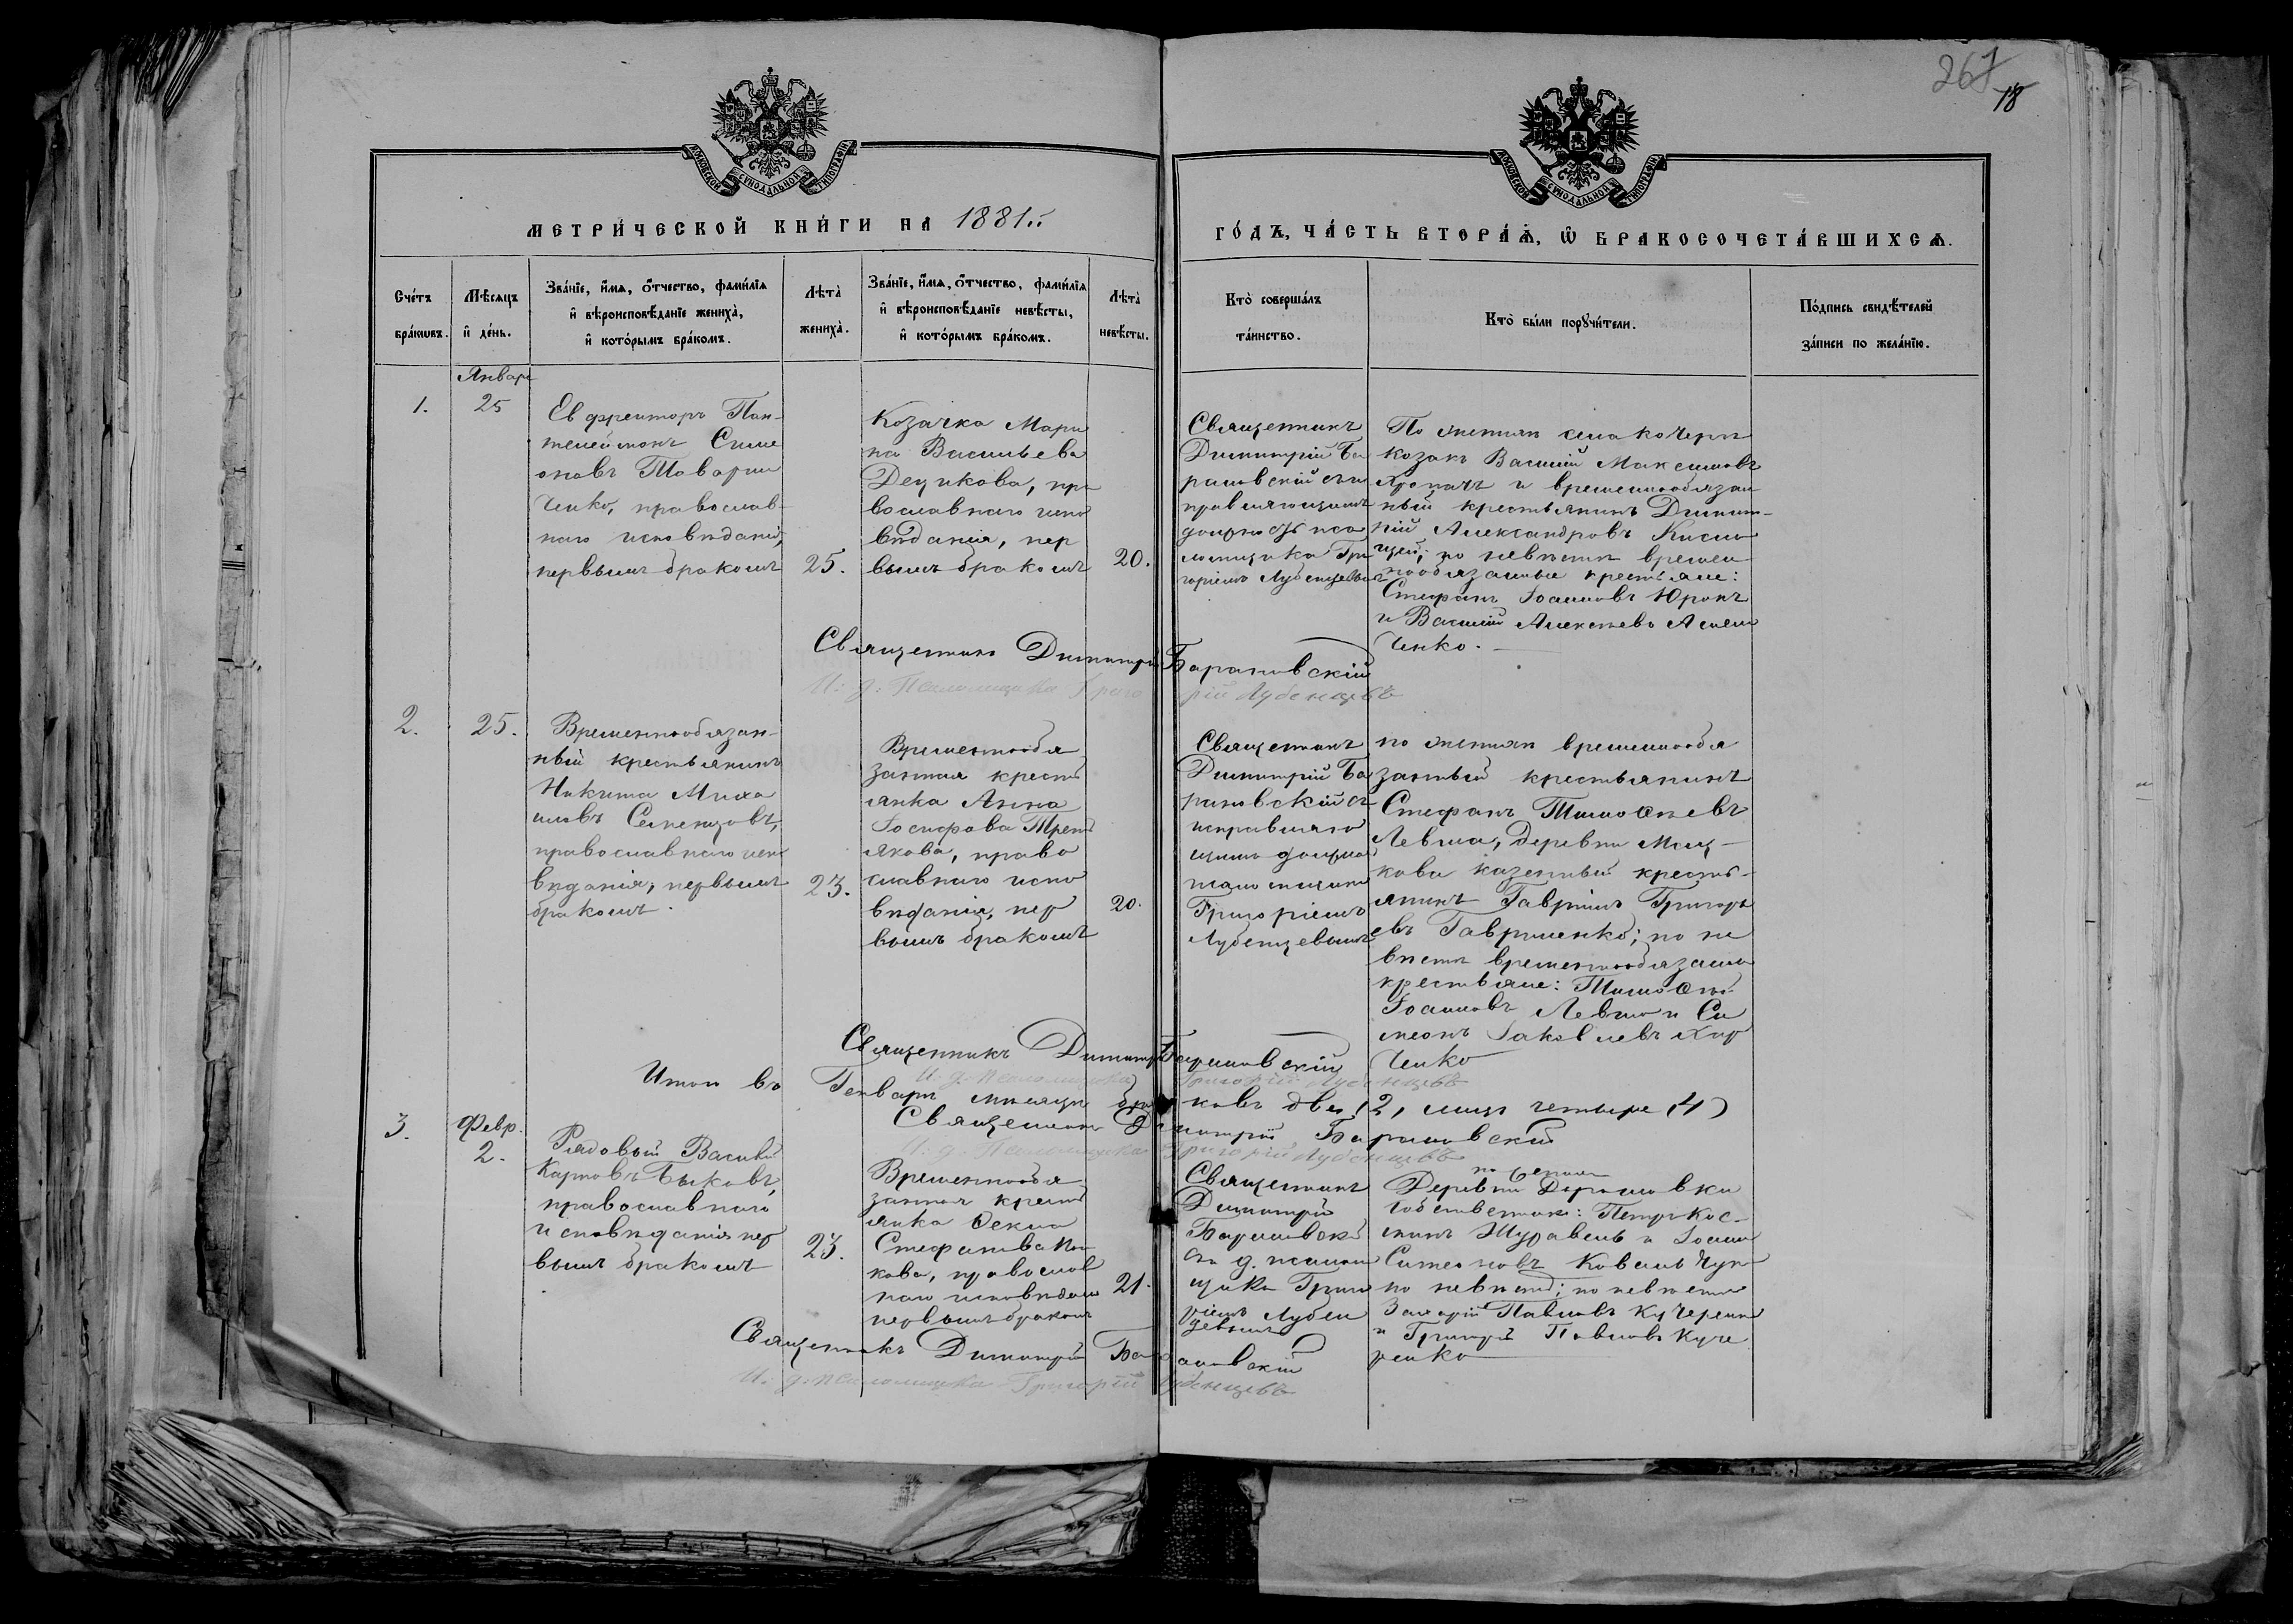 267
18
МОСКОВСКОЙ СѴНОДАЛЬНОЙ ТИПОГРАФІИ
МОСКОВСКОЙ СѴНОДАЛЬНОЙ ТИПОГРАФІИ
МЕТРИ́ЧЕСКОЙ КНИ́ГИ НА 1881.
ГО́ДЪ, ЧА́СТЬ ВТОРА́Ѧ, Ѡ БРАКОСОЧЕТА́ВШИХСѦ.
Сче́тъ
бра́кѡвъ.
Мѣ́сѧцъ
и҆ де́нь.
Зва́нїе, и҆́мѧ, ѻ҆́тчество, фами́лїѧ
и҆ вѣроисповѣ́данїе женихà,
и҆ кото́рымъ бра́комъ.
Лѣтà
женихà.
Зва́нїе, и҆́мѧ, ѻ҆́тчество, фами́лїѧ
и҆ вѣроисповѣ́данїе невѣ́сты,
и҆ кото́рымъ бра́комъ.
Лѣтà
невѣ́сты.
Ктò соверша́лъ
та́инство.
Ктò бы́ли порꙋчи́тели.
По́дпись свидѣ́телей
за́писи по жела́нїю.
Январь
1.
25
Ефрейторъ Пан-
телеймонъ Симе
оновъ Товарни
ченко, православ-
наго исповѣданія,
первымъ бракомъ
25.
Козачка Мари
на Васильева
Децикова, пра
вославнаго испо
вѣданія, пер
вымъ бракомъ
20.
Священникъ
Димитрій Ба
рановскій съ и
правляющимъ
должность пса
ломщика Гри
горіемъ Лубенцевымъ
По женихѣ села
козакъ Василій Максимовъ
и временнообязан
ный крестьянинъ Димит-
рій Александровъ
по невѣстѣ времен
нообязанные крестьяне:
Стефанъ Іоанновъ Юрокъ
и Василій Алексѣевъ
ченко.
Священникъ Димитрій Барановскій
И. д. Псаломщика Григорій Лубенцевъ
2.
25.
Временнообязан-
ный крестьянинъ
Никита Миха
иловъ Семенцовъ,
православнаго испо
вѣданія, первымъ
бракомъ.
23.
Временнообя
занная кресть
янка Анна
Іосифова Трет
якова, право
славнаго испо
вѣданія, пер
вымъ бракомъ
20.
Священникъ
Димитрій Ба
рановскій съ
исправляю
щимъ должн
псаломщика
Григоріемъ
Лубенцевымъ
по женихѣ временнообя
занный крестьянинъ
Стефанъ Тимоѳеевъ
Левша, деревни Мац-
ковки казенный кресть-
янинъ Гавріилъ Григорь
евъ Гавриленко; по не
вѣстѣ временнообязанные
крестьяне: Тимоѳей
Іоанновъ Левша и Си
меонъ Іаковлевъ Хар
ченко
Священникъ Димитрій Барановскій
И. д. Псаломщика Григорій Лубенцевъ
Итого въ Генварѣ мѣсяцѣ браковъ два (2) лицъ четыре (4)
Священникъ Димитрій Барановскій
И. д. Псаломщика Григорій Лубенцевъ
3.
Февр.
2.
Рядовый Василій
Карповъ Быковъ,
православнаго
исповѣданія пер
вымъ бракомъ
23.
Временнообя
занная кресть
янка Ѳекла
Стефанова
кова, православ
наго исповѣданія
первымъ бракомъ
21.
Священникъ
Димитрій
Барановскій
съ д. псалом
щика Григо
ріемъ Лубен
цевымъ
Деревни
собственники: Петръ Кос-
минъ Журавель и Іоаннъ
Симеоновъ Коваль
по невѣстѣ
Захарій Павловъ Кучеренко
и Григорій Павловъ Куче
ренко
Священникъ Димитрій Барановскій
И. д. псаломщика Григорій Лубенцевъ